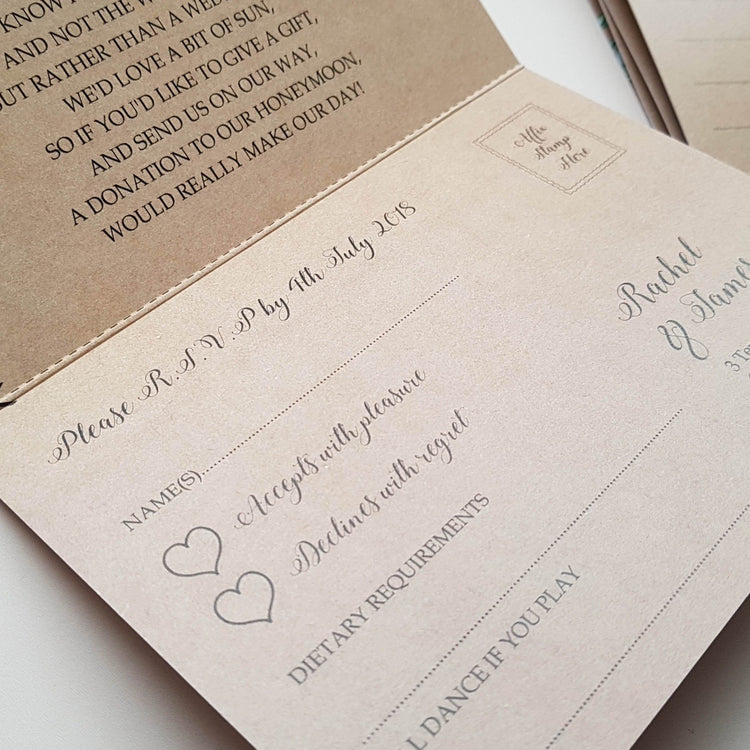 KNOW
AND NOT THE W
OUT RATHER THAN A WED
WE'D LOVE A BIT OF SUN,
SO IF YOU'D LIKE TO GIVE A GIFT,
AND SEND US ON OUR WAY,
A DONATION TO OUR HONEYMOON,
WOULD REALLY MAKE OUR DAY!
Affix
Stamp
Here
Please R.S.V.P by 4th July 2018
NAME(S)
Accepts with pleasure
Declines with regret
DIETARY REQUIREMENTS
L DANCE IF YOU PLAY
Rachel
& James
3 To